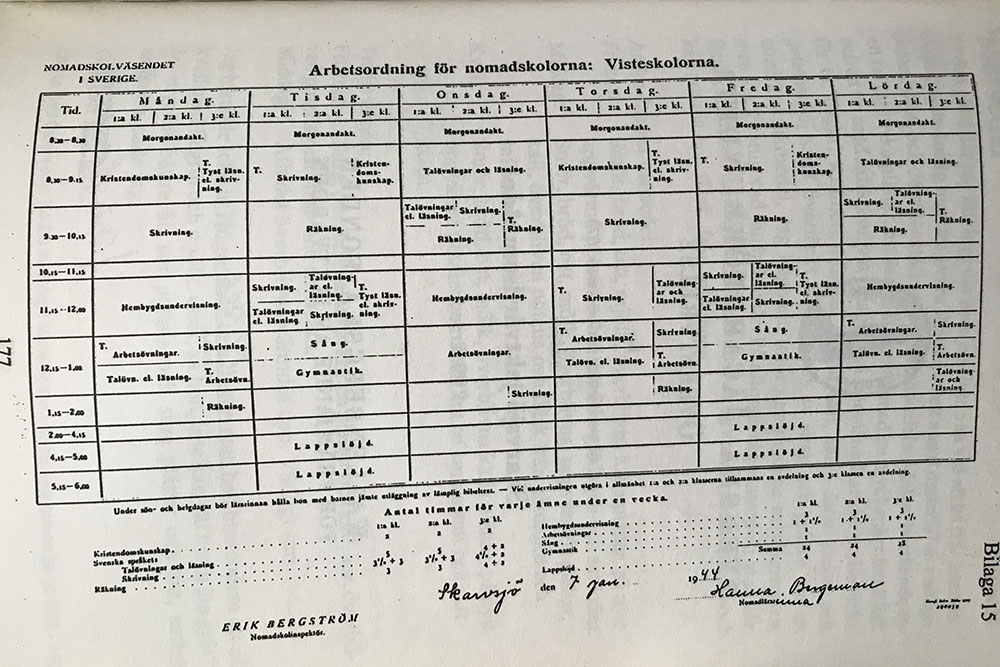 NOMADSKOLVÄSENDET
I SVERIGE.
Arbetsordning för nomadskolorna: Visteskolorna.
Tid. Måndag. Tisdag. Onsdag. Torsdag. Fredag. Lördag.
1:a kl. 2:a kl. 3:e kl. 1:a kl. 2:a kl. 3:e kl. 1:a kl. 2:a kl. 3:e kl. 1:a kl. 2:a kl. 3:e kl. 1:a kl. 2:a kl. 3:e kl. 1:a kl. 2:a kl. 3:e kl.
Morgonandakt. Morgonandakt. Morgonandakt. Morgonandakt. Morgonandakt. Morgonandakt.
8,30—9,15 Kristendomskunskap. T. Tyst läsn. el. skrivning. T. Skrivning. Kristendomskunskap. Talövningar och läsning. Kristendomskunskap. T. Tyst läsn. el. skrivning. T. Skrivning. Kristendomskunskap. Talövningar och läsning.
9,30—10,15 Skrivning. Räkning. Talövningar el. läsning. Skrivning. T. Räkning. Räkning. Skrivning. Räkning. Skrivning. Talövningar el. läsning. T. Räkning. Räkning.
10,15—11,15
11,15—12,00 Hembygdsundervisning. Skrivning. Talövningar el. läsning. T. Tyst läsn. el. skrivning. Talövningar el. läsning. Skrivning. Hembygdsundervisning. T. Skrivning. Talövningar och läsning. Skrivning. Talövningar el. läsning. T. Tyst läsn. el. skrivning. Talövningar el. läsning. Skrivning. Hembygdsundervisning.
12,15—1,00 T. Arbetsövningar. Skrivning. Talövn. el. läsning. T. Arbetsövn. Sång. Gymnastik. Arbetsövningar. T. Arbetsövningar. Skrivning. Talövn. el. läsning. T. Arbetsövn. Sång. Gymnastik. T. Arbetsövningar. Skrivning. Talövn. el. läsning. T. Arbetsövn.
1,15—2,00 Räkning. Skrivning. Räkning. Talövningar och läsning.
2,00—4,15
4,15—5,00 Lappslöjd. Lappslöjd.
5,15—6,00 Lappslöjd. Lappslöjd.
Under sön- och helgdagar bör lärarinnan hålla bön med barnen jämte utläggning av lämplig bibeltext. — Vid undervisningen utgöra i allmänhet 1:a och 2:a klasserna tillsammans en avdelning och 3:e klassen en avdelning.
Antal timmar för varje ämne under en vecka.
1:a kl. 2:a kl. 3:e kl.
Kristendomskunskap 2 2 2
Svenska språket:
Talövningar och läsning 5 5
Skrivning
Räkning 3 3
1:a kl. 2:a kl. 3:e kl.
Hembygdsundervisning 3 3 3
Arbetsövningar
Sång 1 1 1
Gymnastik 1 1 1
Summa 24 24 25
Lappslöjd 4 4 4
Skarvsjö den 7 jan. 1944
Hanna Bergeman
ERIK BERGSTRÖM
Nomadskolinspektör.
177
Bilaga 15